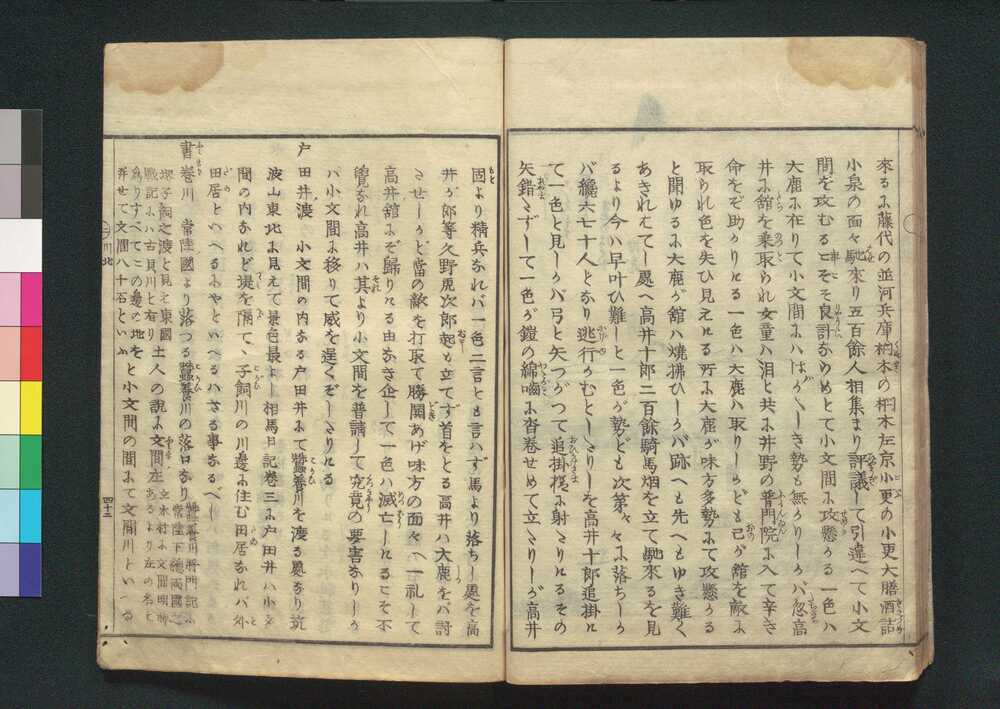 來るに藤代の並河兵庫桐木の桐木左京小更の小更大膳酒詰
小泉の面々馳來り五百餘人相集まり評議して引違へて小文
間を攻むることそ良計ならめとて小文間に攻懸くる一色ハ
大鹿に在りて小文間にハはか〴〵しき勢も無かりしかバ忽高
井に舘を乗取られ女童ハ泪と共に井野の普門院に入て辛き
命をぞ助かりける一色ハ大鹿ハ取りしかども己が舘を敵に
取られ色を失ひ見えける所に大鹿が味方多勢にて攻懸ける
と聞ゆるに大鹿が舘ハ燒拂ひしかバ跡へも先へもゆき難く
あきれはてし處へ高井十郎二百餘騎馬烟を立て馳來るを見
るより今ハ早叶ひ難しと一色が勢ども次第々々に落ちしか
バ纔六七十人となり逃行かむとしたりしを高井十郎追掛け
て一色と見しかバ弓と矢つがつて追掛樣に射たりけるその
矢錯たずして一色が鎧の綿嚙に沓卷せめて立たりしが高井
固より精兵なれバ一色二言とも言ハず馬より落ちし處を高
井が郎等久野虎次郎起も立てず首をとる高井ハ大鹿をバ討
たせしかど當の敵を打取て勝閧あげ味方の面々へ一礼して
高井舘にぞ歸りける由なき企して一色ハ滅亡しけるこそ不
覺なれ高井ハ其より小文間を普請して究竟の要害なりしか
バ小文間に移りて威を逞くぞしたりける
戸田井渡 小文間の内なる戸田井にて蠶養川を渡る處なり筑
波山東北に見えて景色最よし相馬日記卷三に戸田井ハ小文
間の内なれど堤を隔て、子飼川の川邊に住む田居なれバ外
田居といへるにやといへるハさる事なるべし
書卷川 常陸國より落つる蠶養川の落口なり蠶養川將門記に
堺子飼之渡と見え東國
戰記にハ古貝川と有り土人の說に文間左
爲りすべてこの邊の地を
弁せて文間八十石といふと小文間の間にて文間川といへる
二 川北
四十三